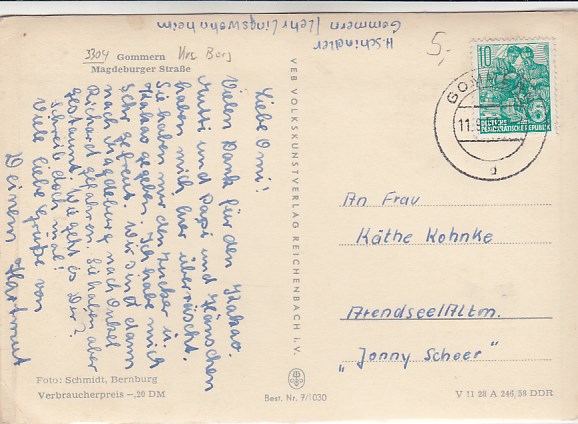 3304 Gommern Krs Berg
Magdeburger Straße
H. Schindler
Gommern / Lehrlingswohnheim
5,-
Liebe Omi!
Vielen Dank für den Kakao.
Mutti und Papi und Hänschen
haben mich hier überrascht.
Sie haben mir den Zucker u.
Kakao gegeben. Ich habe mich
sehr gefreut. Wir sind dann
nach Magdeburg nach Onkel
Richard gefahren. Sie haben aber
gestaunt. Wie geht es Dir?
Schreib doch mal!
Viele liebe Grüße von
Deinem Hartmut
Foto: Schmidt, Bernburg
Verbraucherpreis -,20 DM
VEB VOLKSKUNSTVERLAG REICHENBACH i. V.
Best. Nr. 7/1030
10
DEUTSCHE
DEMOKRATISCHE REPUBLIK
GOMMERN
11.
g
An Frau
Käthe Kohnke
Arendsee/Altm.
„Jonny Scheer"
V 11 28 A 246/58 DDR